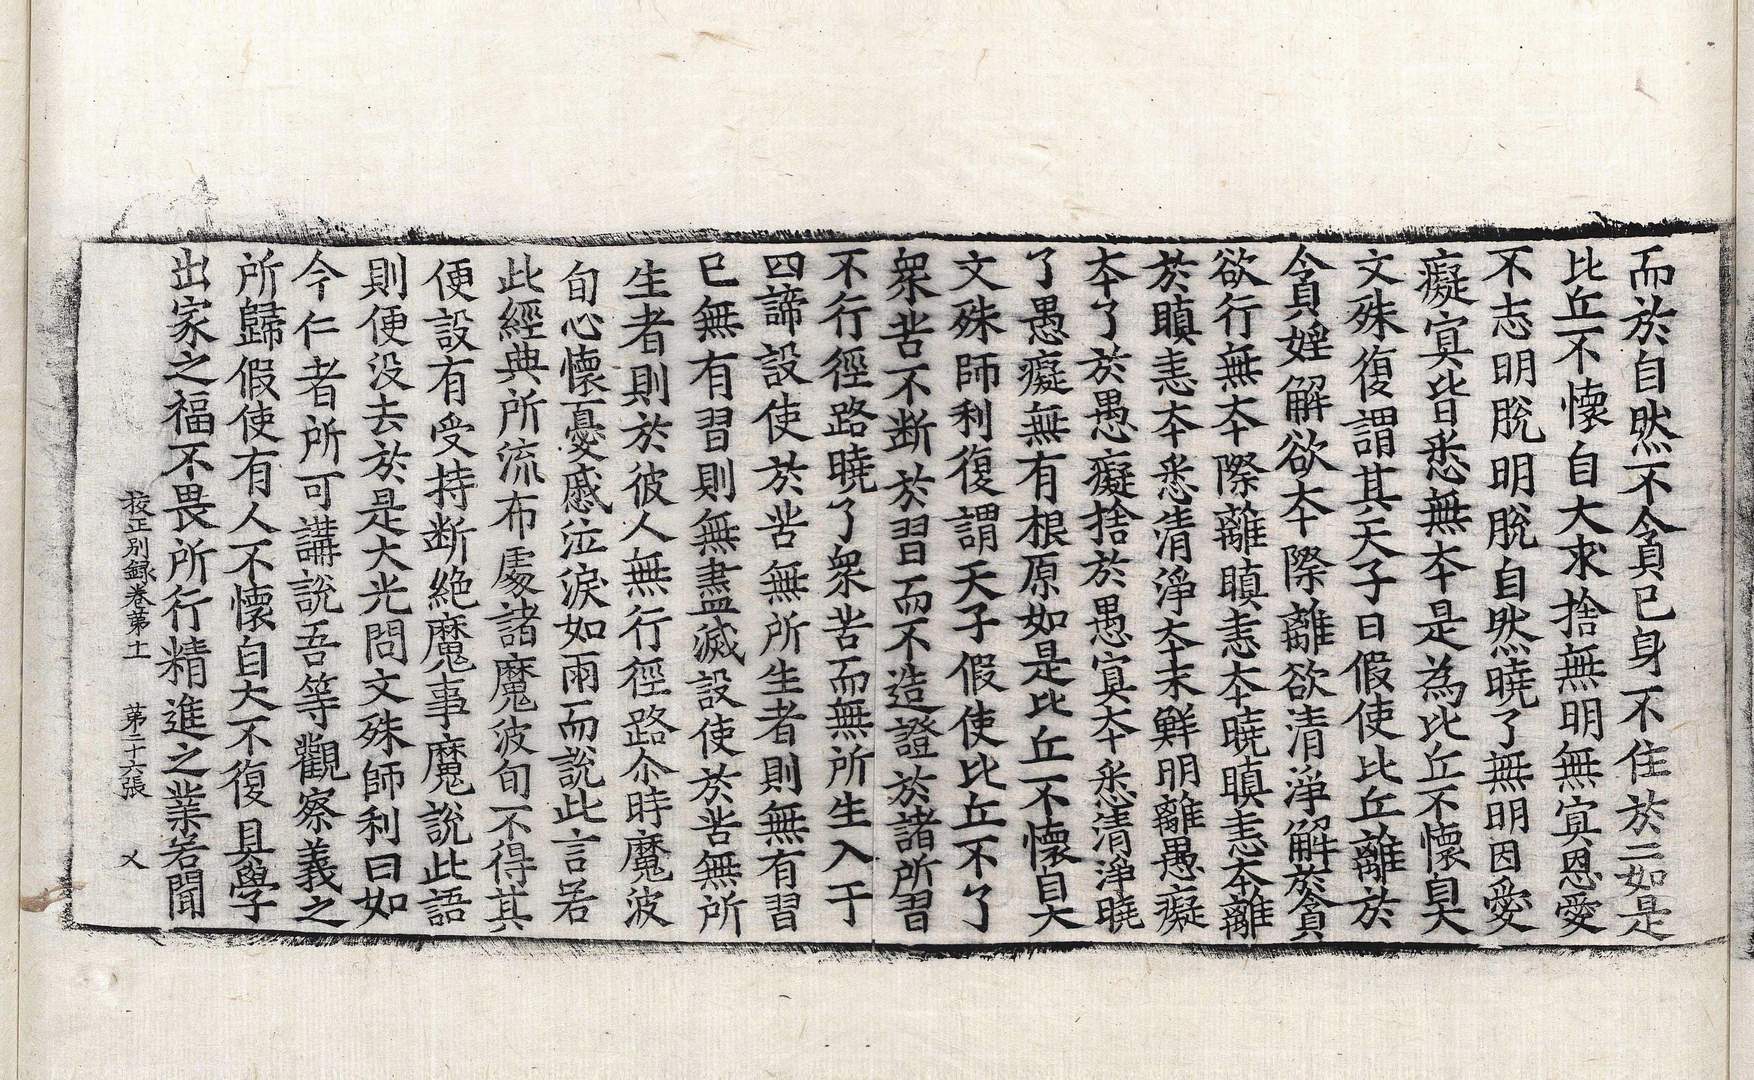 而於自然不貪已身不住於二如是
比丘不懷自大求捨無明無冥恩愛
不志明脫明脫自然曉了無明因愛
癡冥皆悉無夲是為比丘不懷自大
文殊復謂其天子曰假使比丘離於
貪婬解欲夲際離欲清淨解於貪
欲行無夲際離瞋恚夲曉瞋恚夲離
於瞋恚夲悉清淨夲末鮮明離愚癡
夲了於愚癡捨於愚冥夲悉清淨曉
了愚癡無有根原如是比丘不懷自大
文殊師利復謂天子假使比丘不了
衆苦不断於習而不造證於諸所習
不行徑路曉了衆苦而無所生入于
四諦設使於苦無所生者則無有習
已無有習則無盡滅設使於苦無所
生者則於彼人無行徑路尒時魔波
旬心懷憂慼泣淚如雨而說此言若
此經典所流布處諸魔波旬不得其
便設有受持断絶魔事魔說此語
則便没去於是大光問文殊師利曰如
今仁者所可講說吾等觀察義之
所歸假使有人不懷自大不復具學
出家之福不畏所行精進之業若聞
校正別録卷第十一　第三十六張　乂